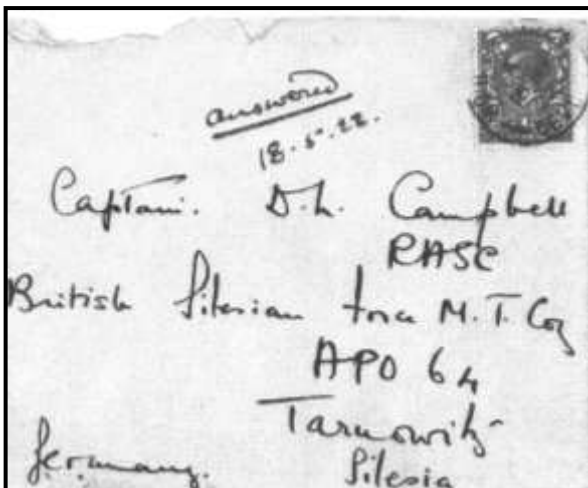 answered
18.5.22.
Captain. D.L. Campbell
RASC
British Silesian force M.T. Coy
APO 64
Tarnowitz
Germany. Silesia